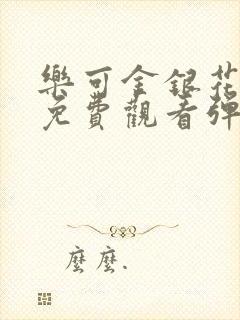 樂可金銀花
免費觀看彈
麼麼.